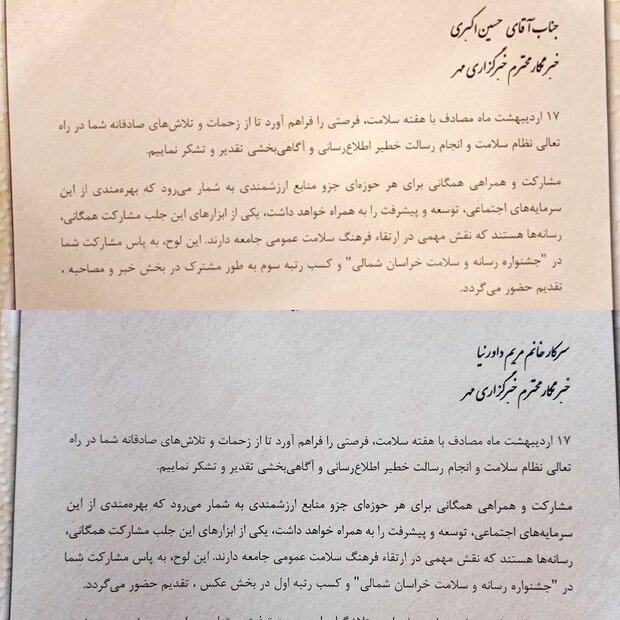 جناب آقای حسین اکبری
خبرنگار محترم خبرگزاری مهر
۱۷ اردیبهشت ماه مصادف با هفته سلامت، فرصتی را فراهم آورد تا از زحمات و تلاش‌های صادقانه شما در راه
تعالی نظام سلامت و انجام رسالت خطیر اطلاع‌رسانی و آگاهی‌بخشی تقدیر و تشکر نماییم.
مشارکت و همراهی همگانی برای هر حوزه‌ای جزو منابع ارزشمندی به شمار می‌رود که بهره‌مندی از این
سرمایه‌های اجتماعی، توسعه و پیشرفت را به همراه خواهد داشت، یکی از ابزارهای این جلب مشارکت همگانی،
رسانه‌ها هستند که نقش مهمی در ارتقاء فرهنگ سلامت عمومی جامعه دارند. این لوح، به پاس مشارکت شما
در "جشنواره رسانه و سلامت خراسان شمالی" و کسب رتبه سوم به طور مشترک در بخش خبر و مصاحبه ،
تقدیم حضور می‌گردد.
سرکار خانم مریم داورنیا
خبرنگار محترم خبرگزاری مهر
۱۷ اردیبهشت ماه مصادف با هفته سلامت، فرصتی را فراهم آورد تا از زحمات و تلاش‌های صادقانه شما در راه
تعالی نظام سلامت و انجام رسالت خطیر اطلاع‌رسانی و آگاهی‌بخشی تقدیر و تشکر نماییم.
مشارکت و همراهی همگانی برای هر حوزه‌ای جزو منابع ارزشمندی به شمار می‌رود که بهره‌مندی از این
سرمایه‌های اجتماعی، توسعه و پیشرفت را به همراه خواهد داشت، یکی از ابزارهای این جلب مشارکت همگانی،
رسانه‌ها هستند که نقش مهمی در ارتقاء فرهنگ سلامت عمومی جامعه دارند. این لوح، به پاس مشارکت شما
در "جشنواره رسانه و سلامت خراسان شمالی" و کسب رتبه اول در بخش عکس ، تقدیم حضور می‌گردد.